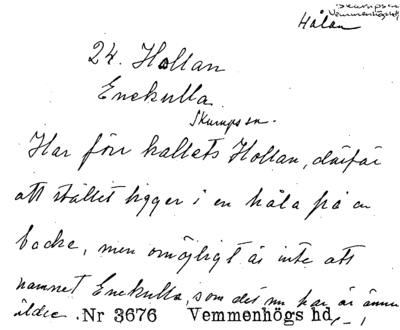 Skurups sn
Vemmenhögs hd
Hålan
24. Hollan
Enekulla
Skurups sn.
Har förr kallets Hollan, därför
att stället ligger i en håla på en
backe, men omöjligt är inte att
namnet Enekulla, som det nu har är ännu
äldre. Nr 3676 Vemmenhögs hd